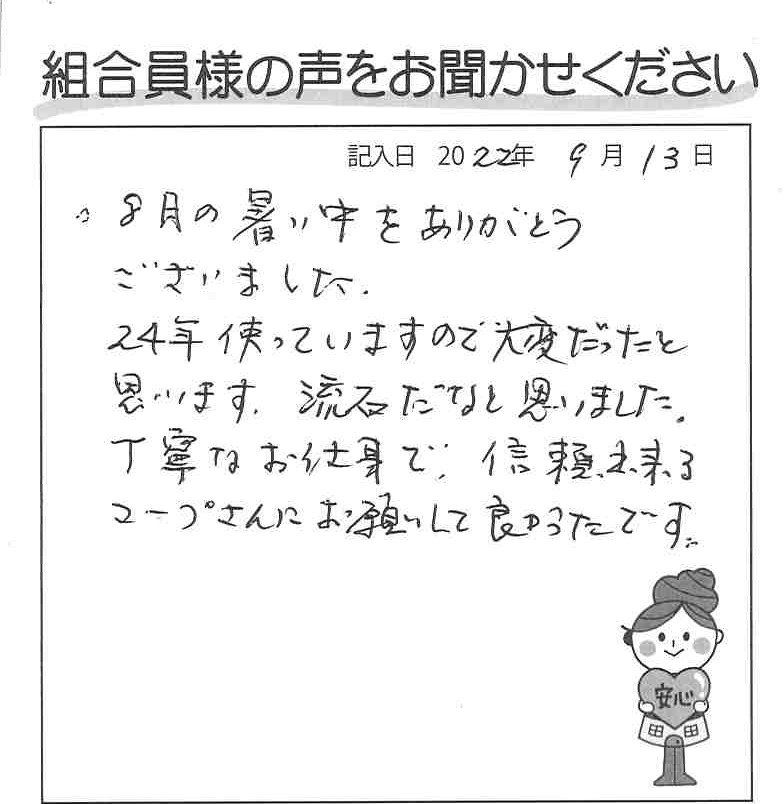 組合員様の声をお聞かせください
記入日 2022年 9月 13日
8月の暑い中をありがとう
ございました.
24年使っていますので大変だったと
思います. 流石だなと思いました。
丁寧なお仕事で、信頼出来る
コープさんにお願いして良かったです。
安心